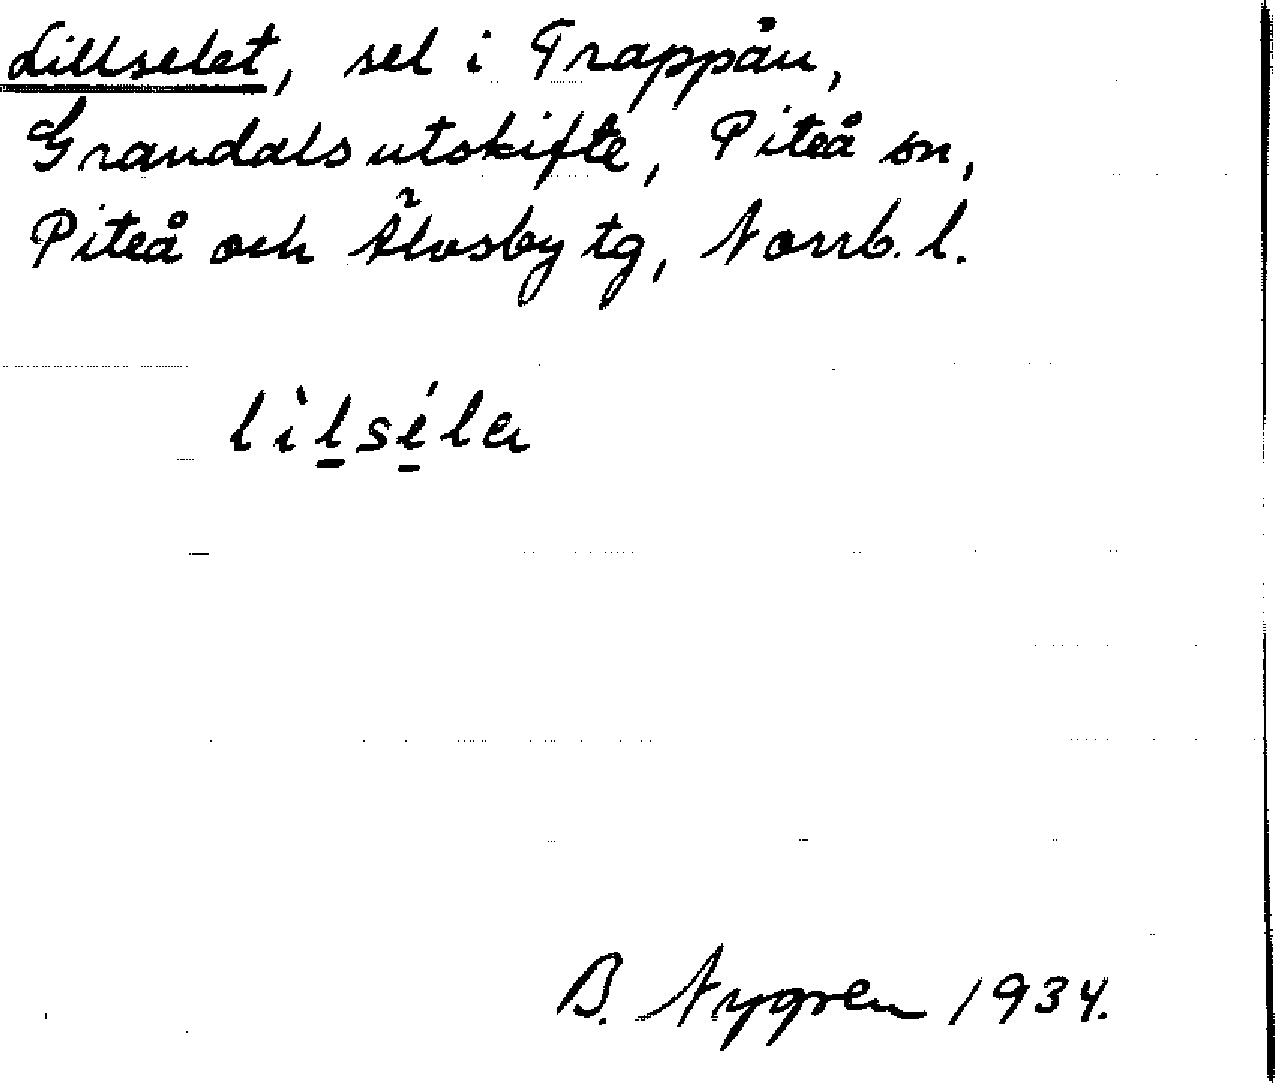 Lillselet, sel i Trappån,
Grandals utskifte, Piteå sn,
Piteå och Älvsby tg, Norrb. l.
lìl̲sé̲la
B. Nygren 1934.